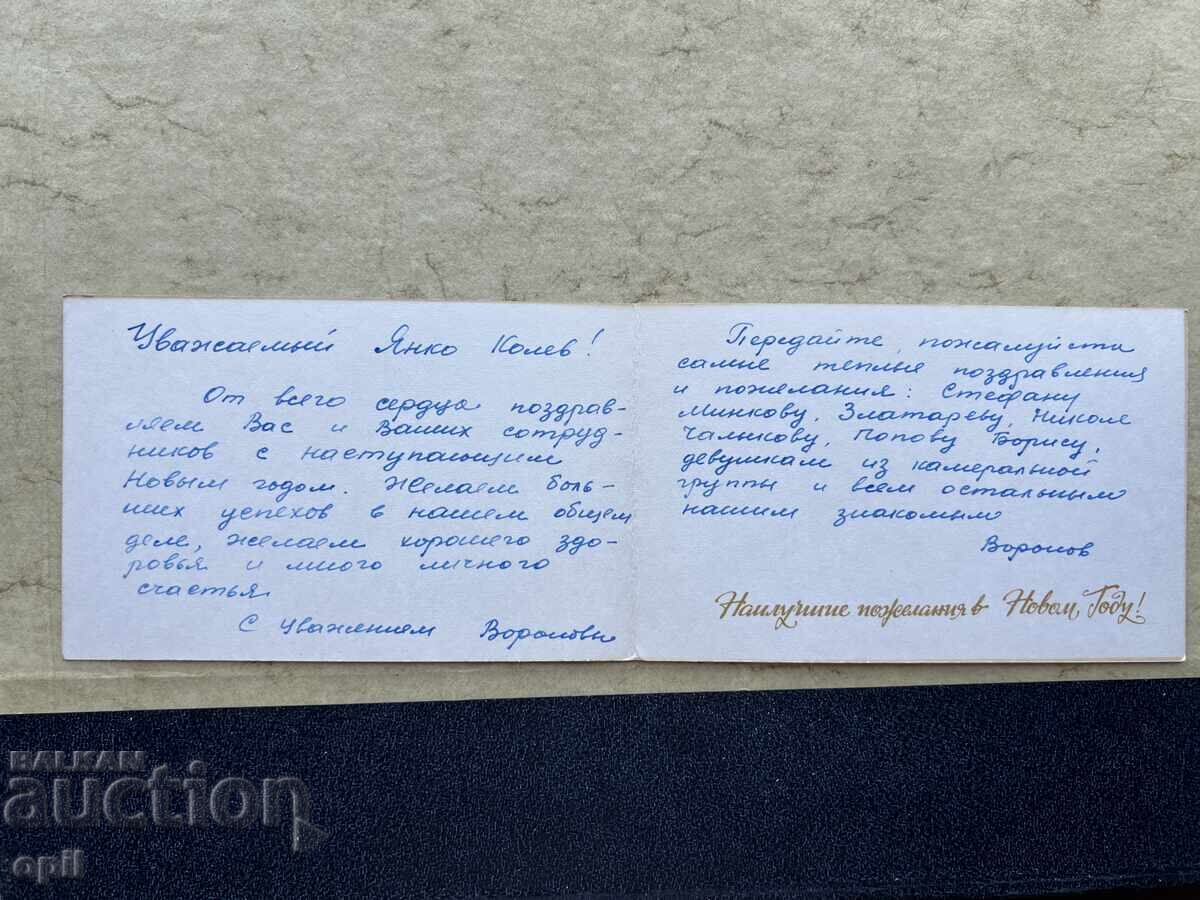 Уважаемый Янко Колев!
От всего сердца поздрав-
ляем Вас и Ваших сотруд-
ников с наступающим
Новым годом. Желаем боль-
ших успехов в нашем общем
деле, желаем хорошего здо-
ровья и много личного
счастья.
С уважением Вороновы
Передайте, пожалуйста
самые теплые поздравления
и пожелания: Стефану
Минкову, Златареву, Николе
Чалыкову, Попову Борису,
девушкам из камеральной
группы и всем остальным
нашим знакомым
Воронов
Наилучшие пожелания в Новом Году!
BALKAN
auction
opil